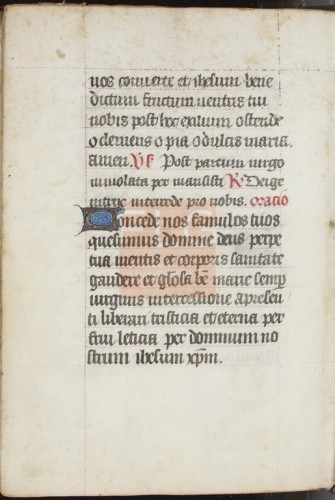 nos conuerte et ihesum bene
dictum fructum uentris tui
nobis post hoc exilium ostende
o clemens o pia o dulcis maria.
amen. Vs Post partum uirgo
inuiolata per mansisti R Dei ge
intercede pro nobis. oracio
Concede nos famulos tuos
quesumus domine deus perpe
tua mentis et corporis sanitate
gaudere et glosa be marie semp
uirginis intercessione a presen
ti liberari tristicia et eterna per
frui leticia per dominum no
strum ihesum xpm.